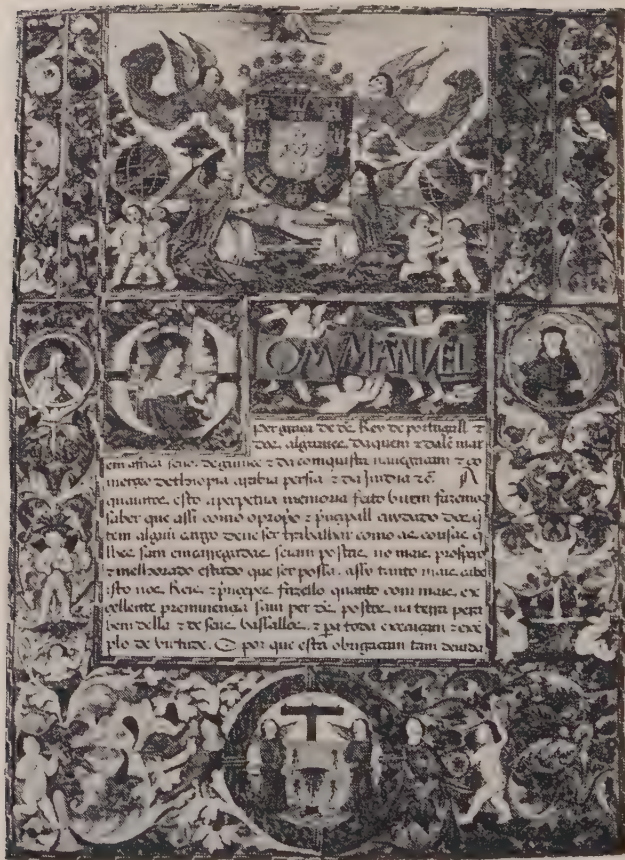 DOM MANVEL
per graça de ds. Rey de portugall &
dos. algarues. daquem & dalē mar
em africa senor. de guinee & da comquista nauegaçam &
mercio dethiopia arabia persia & da Jndia &c. A
quantos. esto a perpetua memoria feito virem fazemos
saber que assi como o propio & principall cuydado dos. q̄
tem alguū cargo deue ser trabalhar como as. cousas. q̄
lhes sam emcarregadas. seiam postas. no mais. prospero
& melhorado estado que ser possa. asse tanto mais. cabe
isto nos. Reis. & principes. fazello quanto com mais. ex
cellente preminencia sam per ds. postos. na terra pera
bem della & de seus. vassallos. & pa toda execuçam & exē
plo de virtude. E por que esta obrigaçam tam deuida